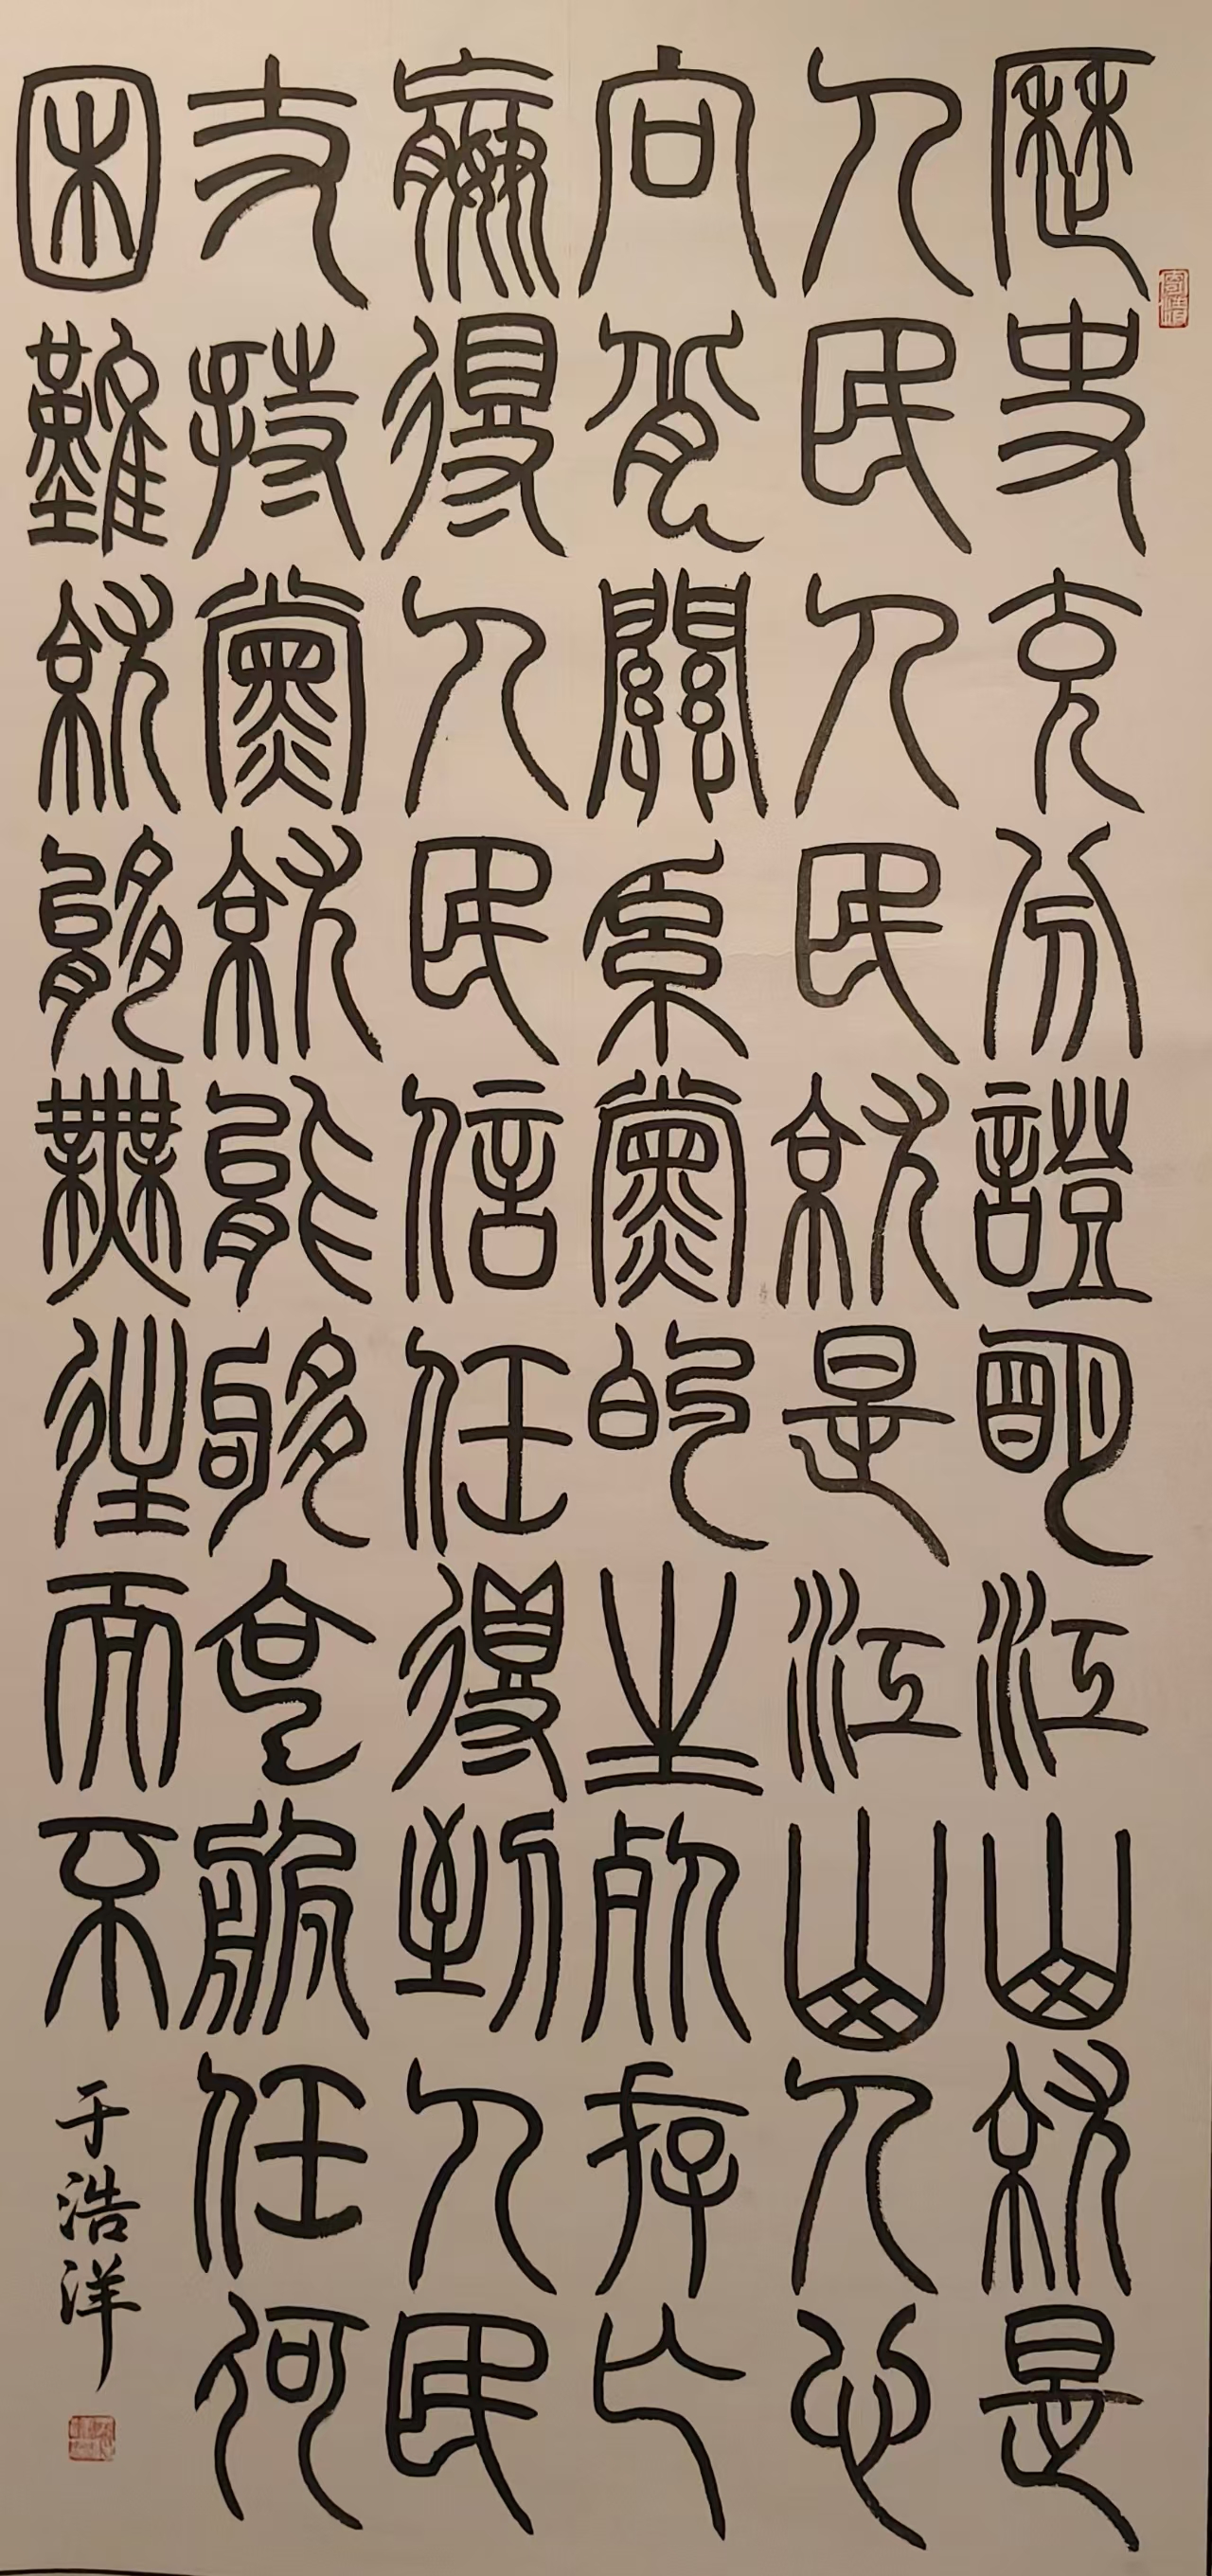 歷史充分證明江山就是
人民人民就是江山人心
向背關系黨的生死存亡
嬴得人民信任得到人民
支持黨就能夠克服任何
困難就能無往而不
于浩洋